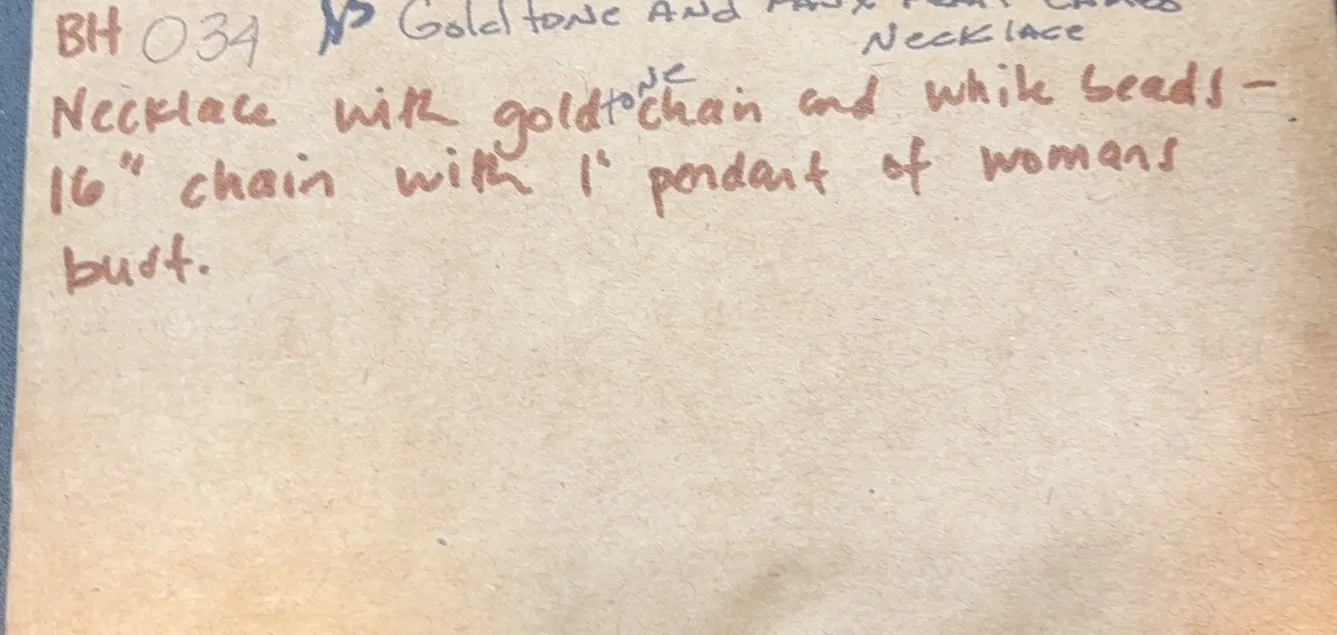 BH 034 Goldtone and Faux Pearl Cameo
Necklace
Necklace with goldtone chain and white beads -
16" chain with 1" pendant of womans
bust.